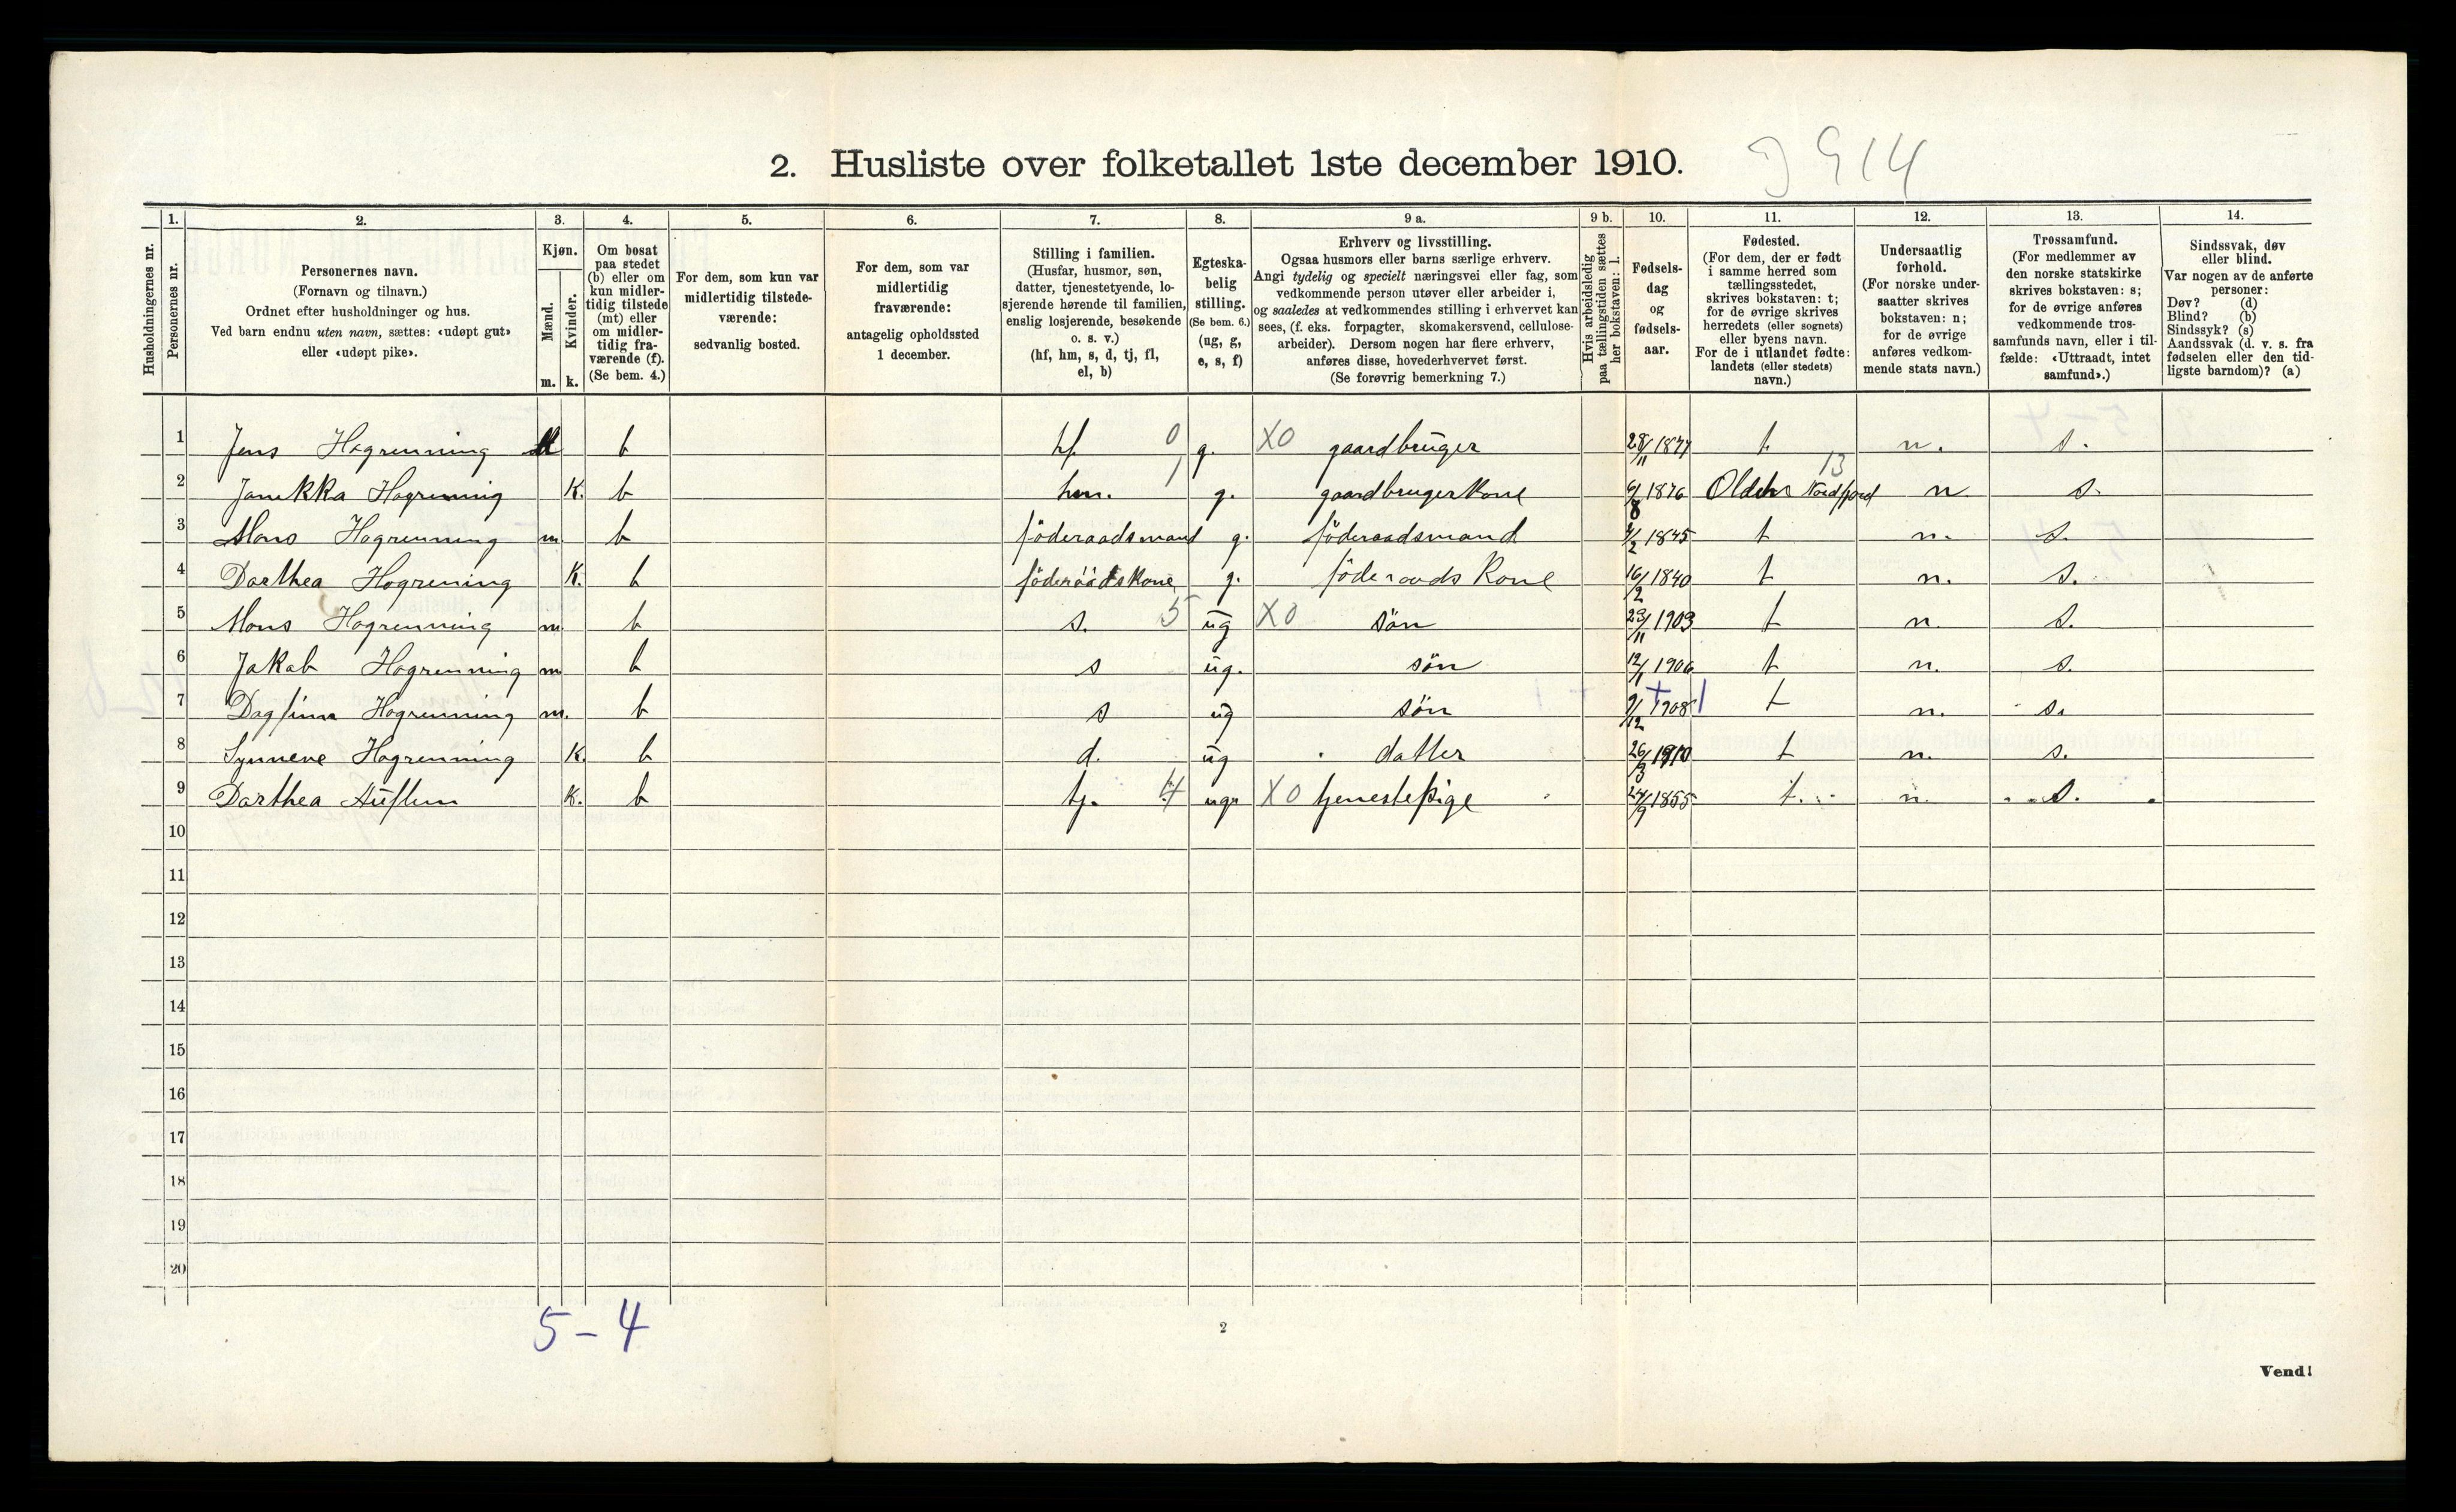 2. Husliste over folketallet 1ste december 1910.
J 914
Husholdningernes nr.
1. Personernes nr.
2. Personernes navn. (Fornavn og tilnavn.) Ordnet efter husholdninger og hus. Ved barn endnu uten navn, sættes: «udøpt gut» eller «udøpt pike».
3. Kjøn. Mænd. m. Kvinder. k.
4. Om bosat paa stedet (b) eller om kun midlertidig tilstede (mt) eller om midlertidig fraværende (f). (Se bem. 4.)
5. For dem, som kun var midlertidig tilstedeværende: sedvanlig bosted.
6. For dem, som var midlertidig fraværende: antagelig opholdssted 1 december.
7. Stilling i familien. (Husfar, husmor, søn, datter, tjenestetyende, losjerende hørende til familien, enslig losjerende, besøkende o. s. v.) (hf, hm, s, d, tj, fl, el, b)
8. Egteskabelig stilling. (Se bem. 6.) (ug, g, e, s, f)
9 a. Erhverv og livsstilling. Ogsaa husmors eller barns særlige erhverv. Angi tydelig og specielt næringsvei eller fag, som vedkommende person utøver eller arbeider i, og saaledes at vedkommendes stilling i erhvervet kan sees, (f. eks. forpagter, skomakersvend, cellulosearbeider). Dersom nogen har flere erhverv, anføres disse, hovederhvervet først. (Se forøvrig bemerkning 7.)
9 b. Hvis arbeidsledig paa tællingstiden sættes her bokstaven: l.
10. Fødselsdag og fødselsaar.
11. Fødested. (For dem, der er født i samme herred som tællingsstedet, skrives bokstaven: t; for de øvrige skrives herredets (eller sognets) eller byens navn. For de i utlandet fødte: landets (eller stedets) navn.)
12. Undersaatlig forhold. (For norske undersaatter skrives bokstaven: n; for de øvrige anføres vedkommende stats navn.)
13. Trossamfund. (For medlemmer av den norske statskirke skrives bokstaven: s; for de øvrige anføres vedkommende trossamfunds navn, eller i tilfælde: «Uttraadt, intet samfund».)
14. Sindssvak, døv eller blind. Var nogen av de anførte personer: Døv? (d) Blind? (b) Sindssyk? (s) Aandssvak (d. v. s. fra fødselen eller den tidligste barndom)? (a)
1 Jens Hogrenning M b hf. 0 g. X0 gaardbruger 28/11 1874 t n. s.
2 Janikka Hogrenning K. b hm. 1 g. gaardbrugerkone 6/8 1876 Olden Nordfjord 13 n s.
3 Mons Hogrenning m b föderaadsmand g. föderaadsmand 1845 t n. s.
4 Darthea Hogrening K. b föderaadskone g. föderaadskone 16/2 1840 t n. s.
5 Mons Hogrenning m b s. 5 ug X0 sön 23/11 1903 t n. s.
6 Jakob Hogrenning m b s ug. sön 12/1 1906 t n. s.
7 Dagfinn Hogrenning m. b s ug sön 9/12 1908 t n. s.
8 Synneve Hogrenning K. b d. ug datter 26/3 1910 t n. s.
9 Darthea Auflem K. b tj. 4 ug. X0 tjenestepige 24/9 1855 t. n. s.
10
11
12
13
14
15
16
17
18
19
20
5-4
2
Vend!